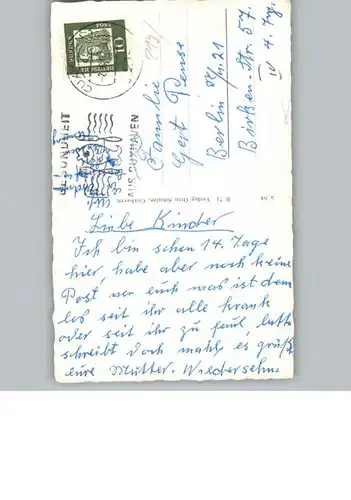 Familie
Gert Pense
Berlin 21
Birken-Str. 57.
GESUNDHEIT
AUS CUXHAVEN
DEUTSCHE
POST
10
Verlag Otto Schulze, Cuxhaven
Liebe Kinder
Ich bin schon 14. Tage
hier, habe aber noch keine
Post von euch was ist denn
los seit ihr alle krank
oder seit ihr zu faul,
schreibt doch mahl, es grüßt
eure Mutter. Wiedersehn.